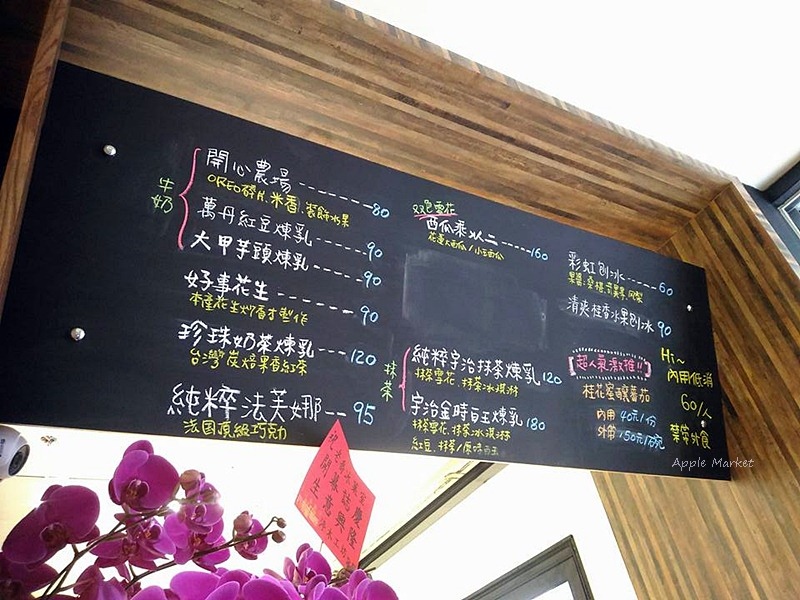 牛奶
開心農場 -------- 80
OREO碎片、米香、裝飾水果
萬丹紅豆煉乳 ------ 90
大甲芋頭煉乳 ------ 90
好事花生 -------- 90
本產花生炒香才製作
珍珠奶茶煉乳 --- 120
台灣炭焙果香紅茶
純粹法芙娜 -- 95
法国頂級巧克力
双色雪花
西瓜乘以二 ----- 160
花蓮大西瓜/小玉西瓜
抹茶
純粹宇治抹茶煉乳 120
抹茶雪花、抹茶冰淇淋
宇治金時白玉煉乳 180
抹茶雪花、抹茶冰淇淋
紅豆、抹茶/原味白玉
彩虹刨冰 ----- 60
果醬:桑椹、奇異果、鳳梨
清爽桂香水果刨冰 90
超人氣激推!!
桂花蜜釀蕃茄
內用 40元/份
外帶 150元/
Hi~
內用低消
60/人
禁帶外食
開幕誌慶
生意興隆
Apple Market